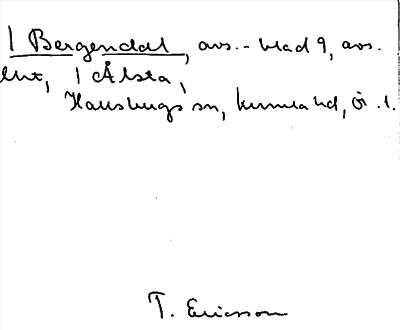 1 Bergendal, avs. - blad 9, avs.
ent, 1 Ålsta,
Hausbergs sn, Kumla hd, Ör. l.
T. Ericsson